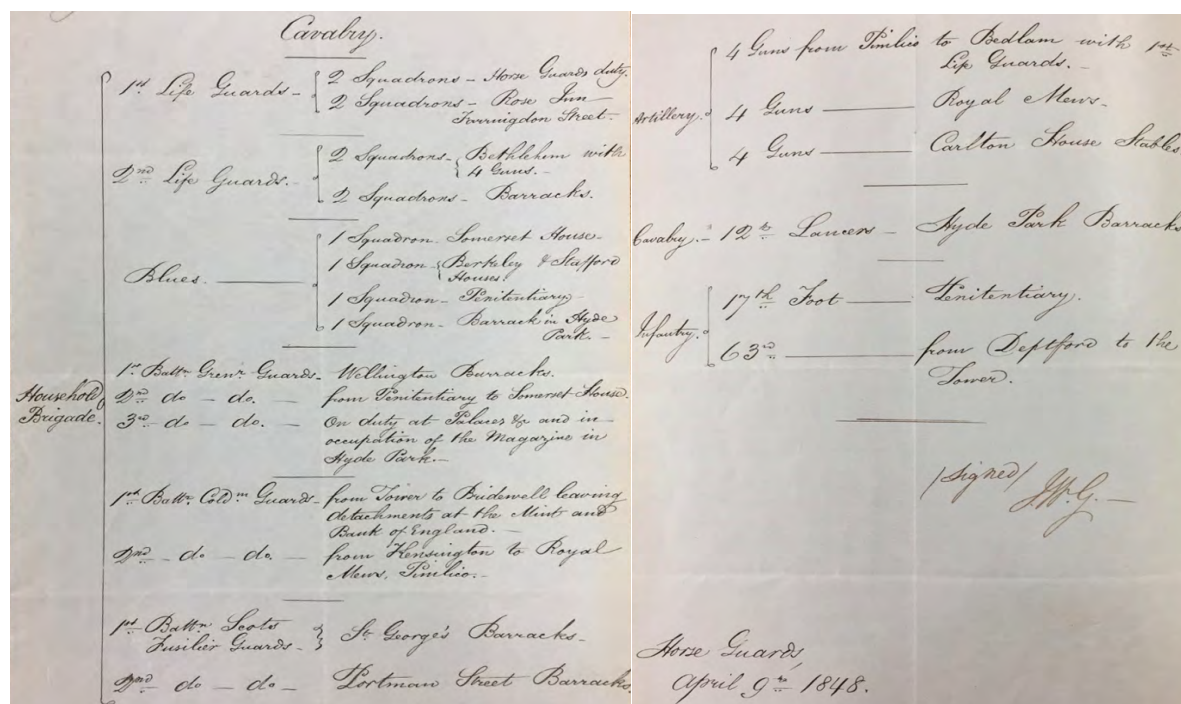 Cavalry.
1st Life Guards - 2 Squadrons - Horse Guards duty.
2 Squadrons - Rose Inn
Farringdon Street.
2nd Life Guards. - 2 Squadrons - Bethlehem with
4 Guns. -
2 Squadrons - Barracks.
Blues. 1 Squadron. Somerset House -
1 Squadron Berkeley & Stafford
Houses.
1 Squadron - Penitentiary
1 Squadron - Barrack in Hyde
Park. -
Household
Brigade.
1st Battn. Grenr. Guards - Wellington Barracks.
2nd do - do. - from Penitentiary to Somerset House.
3rd do - do. - On duty at Palaces &c and in
occupation of the Magazine in
Hyde Park. -
1st Battn. Coldm. Guards - from Tower to Bridewell leaving
detachments at the Mint and
Bank of England. -
2nd - do - do. - from Kensington to Royal
Mews, Pimlico. -
1st Battn Scots
Fusilier Guards - St. George's Barracks -
2nd do - do - Portman Street Barracks.
Artillery. 4 Guns from Pimlico to Bedlam with 1st
Life Guards. -
4 Guns Royal Mews -
4 Guns Carlton House Stables
Cavalry. - 12th Lancers - Hyde Park Barracks
Infantry. 17th Foot Penitentiary.
63rd from Deptford to the
Tower.
/signed/
Horse Guards,
April 9th 1848.